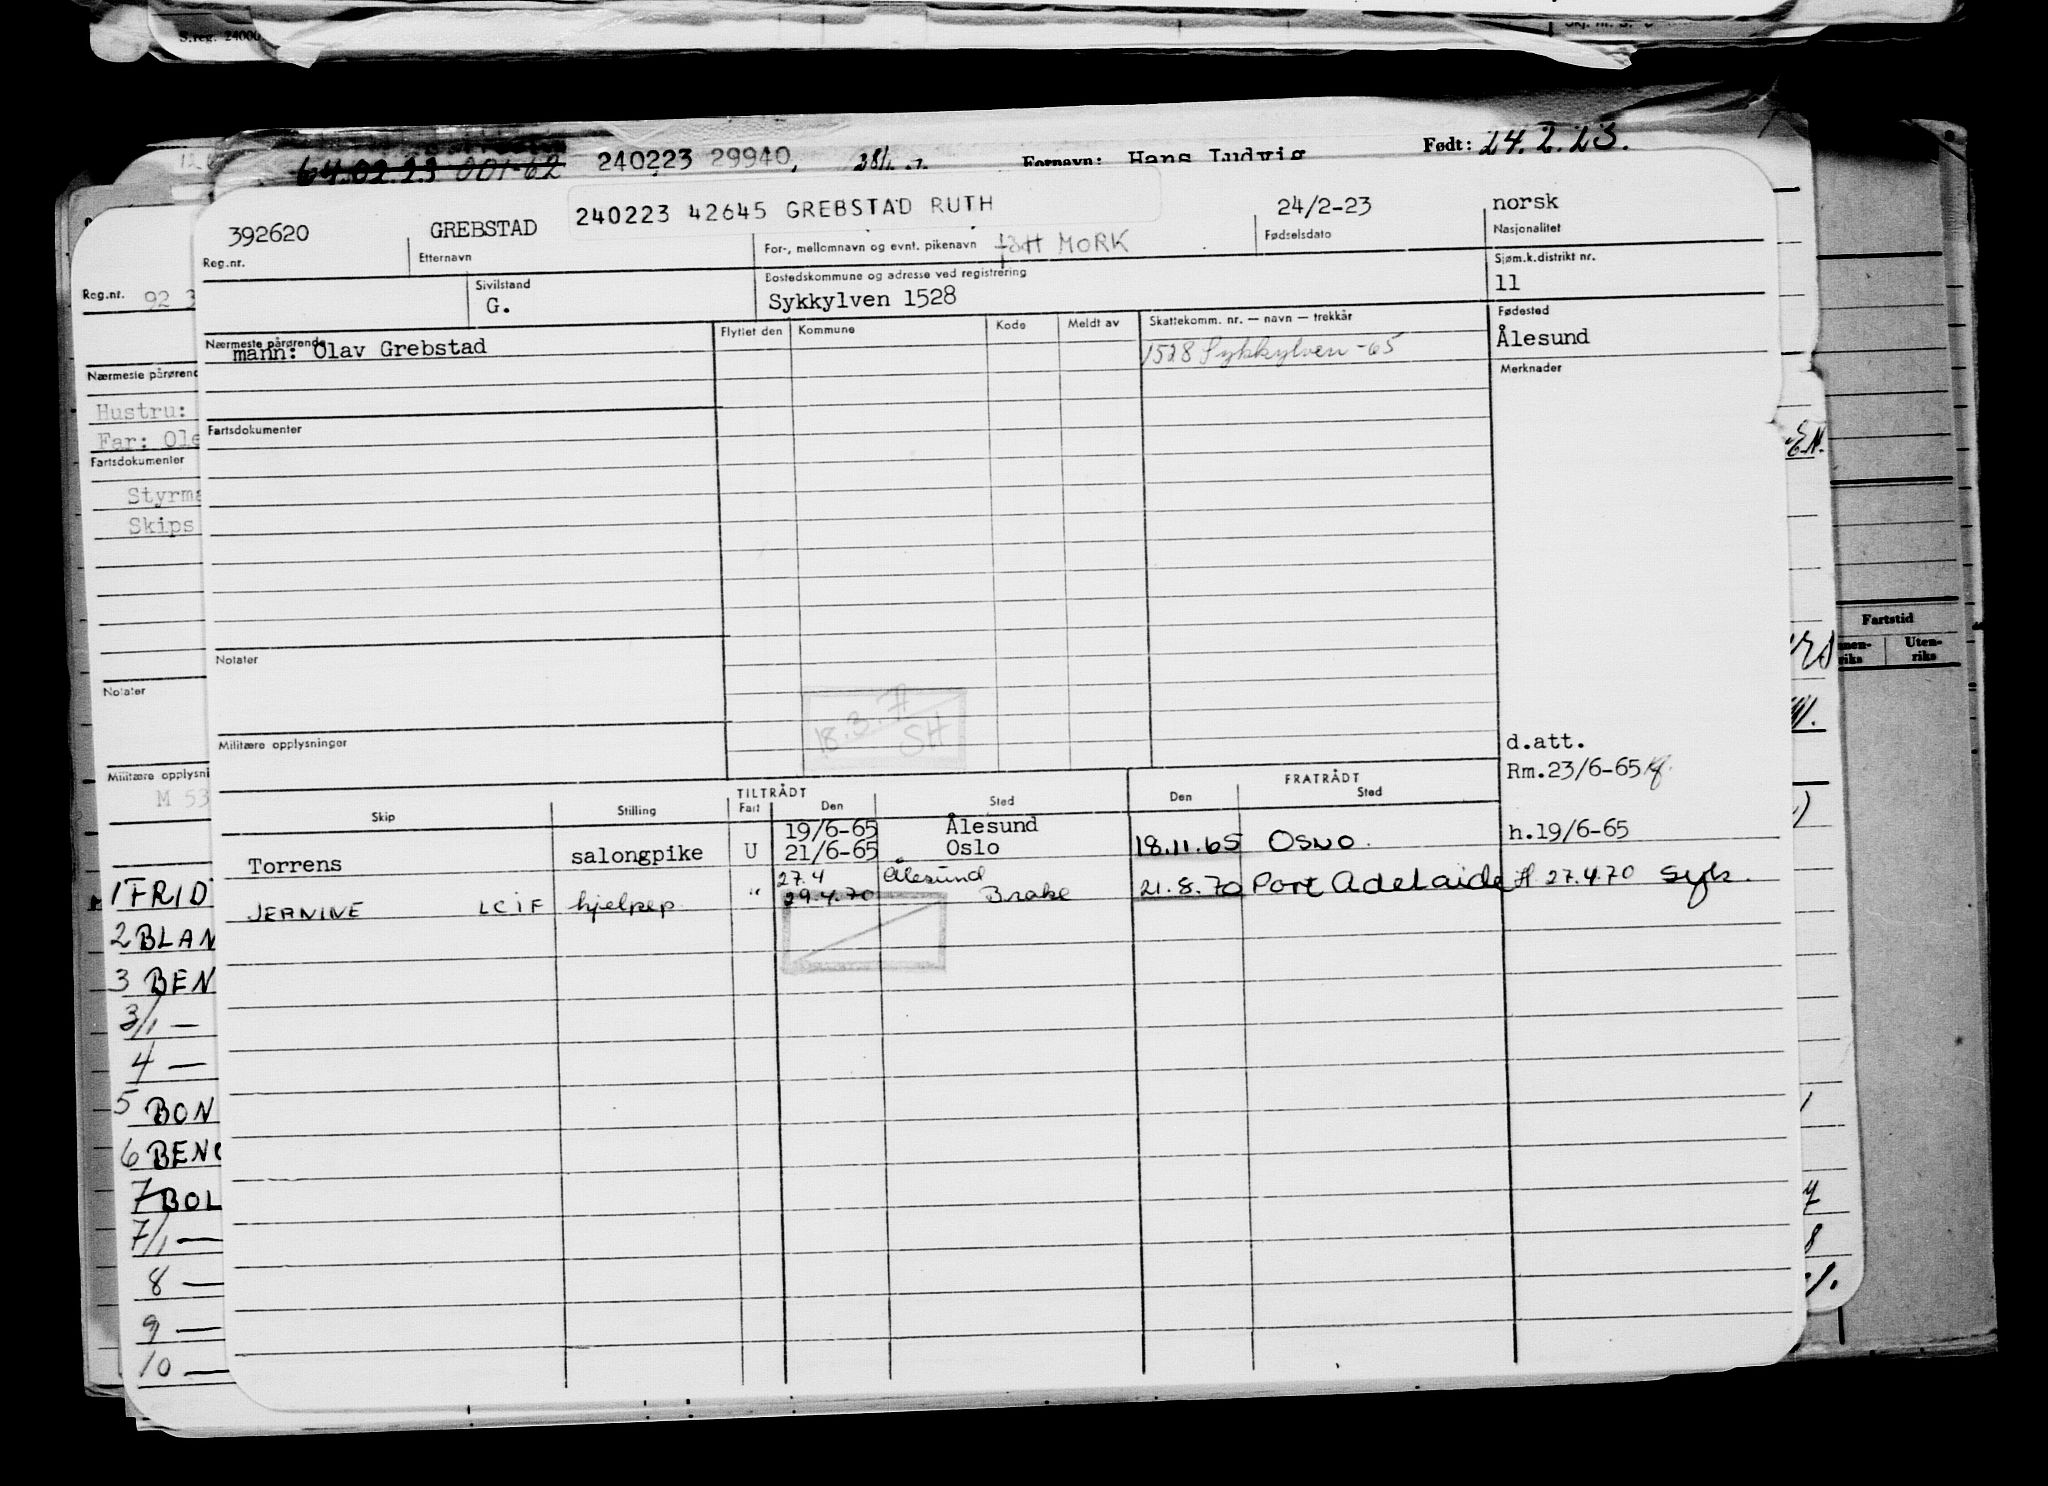 S.reg. 24000
64.02.23 001-62 240223 29940, Fornavn: Hans Ludvig Født: 24.2.23.
392620 GREBSTAD 240223 42645 GREBSTAD RUTH 24/2-23 norsk
Reg.nr. Etternavn For-, mellomnavn og evnt. pikenavn født MORK Fødselsdato Nasjonalitet
Sivilstand Bostedskommune og adresse ved registrering Sjøm.k.distrikt nr.
G. Sykkylven 1528 11
Nærmeste pårørende Flyttet den Kommune Kode Meldt av Skattekomm. nr. — navn — trekkår Fødested
mann: Olav Grebstad 1528 Sykkylven -65 Ålesund
Merknader
Fartsdokumenter
Notater
18.3.7
SH
Militære opplysninger
d.att.
Rm.23/6-65
TILTRÅDT FRATRÅDT
Skip Stilling Fart Den Sted Den Sted
19/6-65 Ålesund h.19/6-65
Torrens salongpike U 21/6-65 Oslo 18.11.65 OSLO.
27.4 Ålesund
JEANINE LCIF hjelpep " 29.4.70 Brake 21.8.70 Port Adelaide H 27.4.70 Syk.
Reg.nr. 92 3
Nærmeste pårørend
Hustru:
Far: Ole
Fartsdokumenter
Styrma
Skips
Notater
Militære opplysni
M 53
1 FRID
2 BLAN
3 BEN
3/1 —
4 —
5 BON
6 BENG
7 BOL
7/1 —
8 —
9 —
10 —
Fartstid
Innen-riks Uten-riks